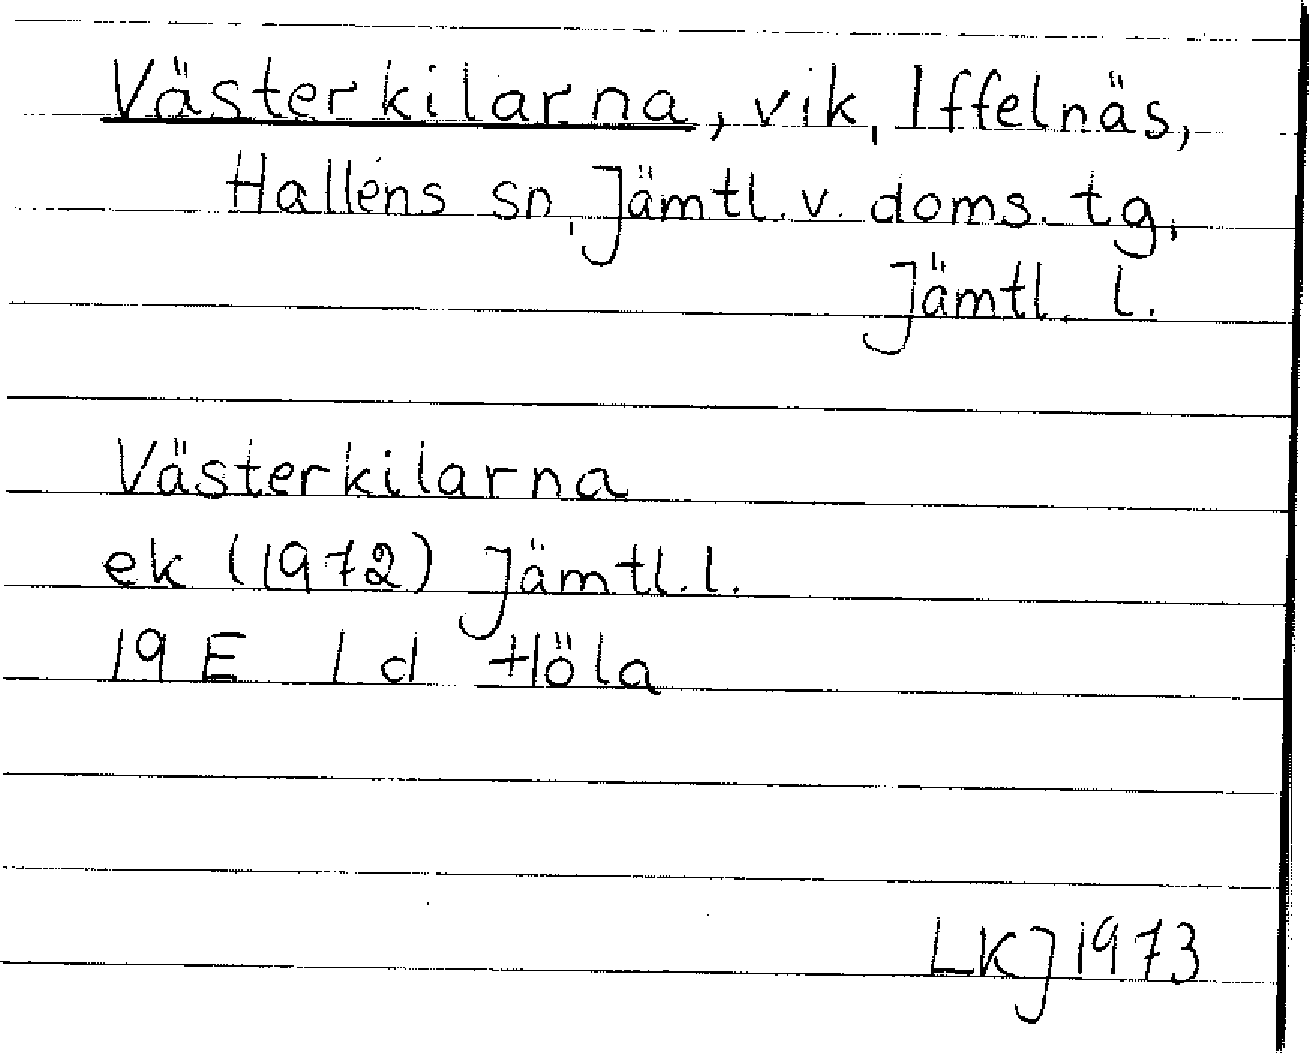 Västerkilarna, vik, Iffelnäs,
Halléns sn, Jämtl. v. doms. tg,
Jämtl. l.
Västerkilarna
ek (1972) Jämtl. l.
19 E 1 d Höla
LKJ 1973